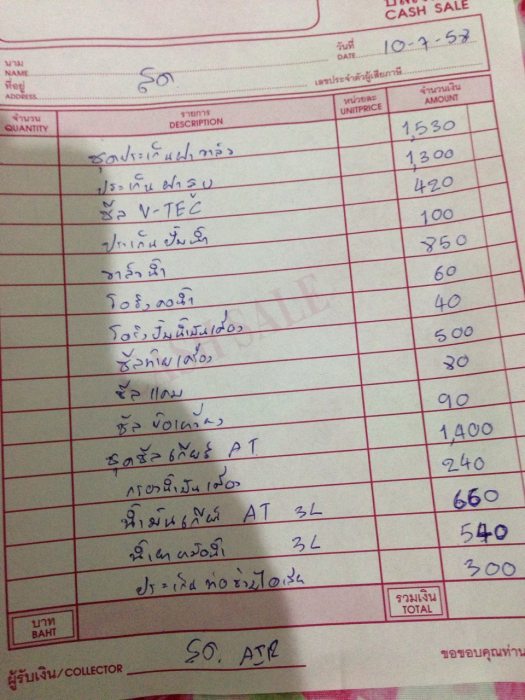 CASH SALE
นาม
NAME
วันที่
DATE 10-7-58
ที่อยู่
ADDRESS
เลขประจำตัวผู้เสียภาษี
จำนวน
QUANTITY
รายการ
DESCRIPTION
หน่วยละ
UNITPRICE
จำนวนเงิน
AMOUNT
ชุดประเก็นฝาวาล์ว 1,530
ประเก็นฝาสูบ 1,300
ซีล V-TEC 420
ประเก็นปั๊มน้ำ 100
วาล์วน้ำ 850
โอริงคอน้ำ 60
โอริงปั๊มน้ำมันเครื่อง 40
ซีลท้ายเครื่อง 500
ซีลแคม 80
ซีลข้อเหวี่ยง 90
ชุดซีลเกียร์ AT 1,400
กรองน้ำมันเครื่อง 240
น้ำมันเกียร์ AT 3L 660
น้ำยาหม้อน้ำ 3L 540
ประเก็นท่อร่วมไอเสีย 300
บาท
BAHT
รวมเงิน
TOTAL
ผู้รับเงิน/COLLECTOR
ขอขอบคุณท่าน